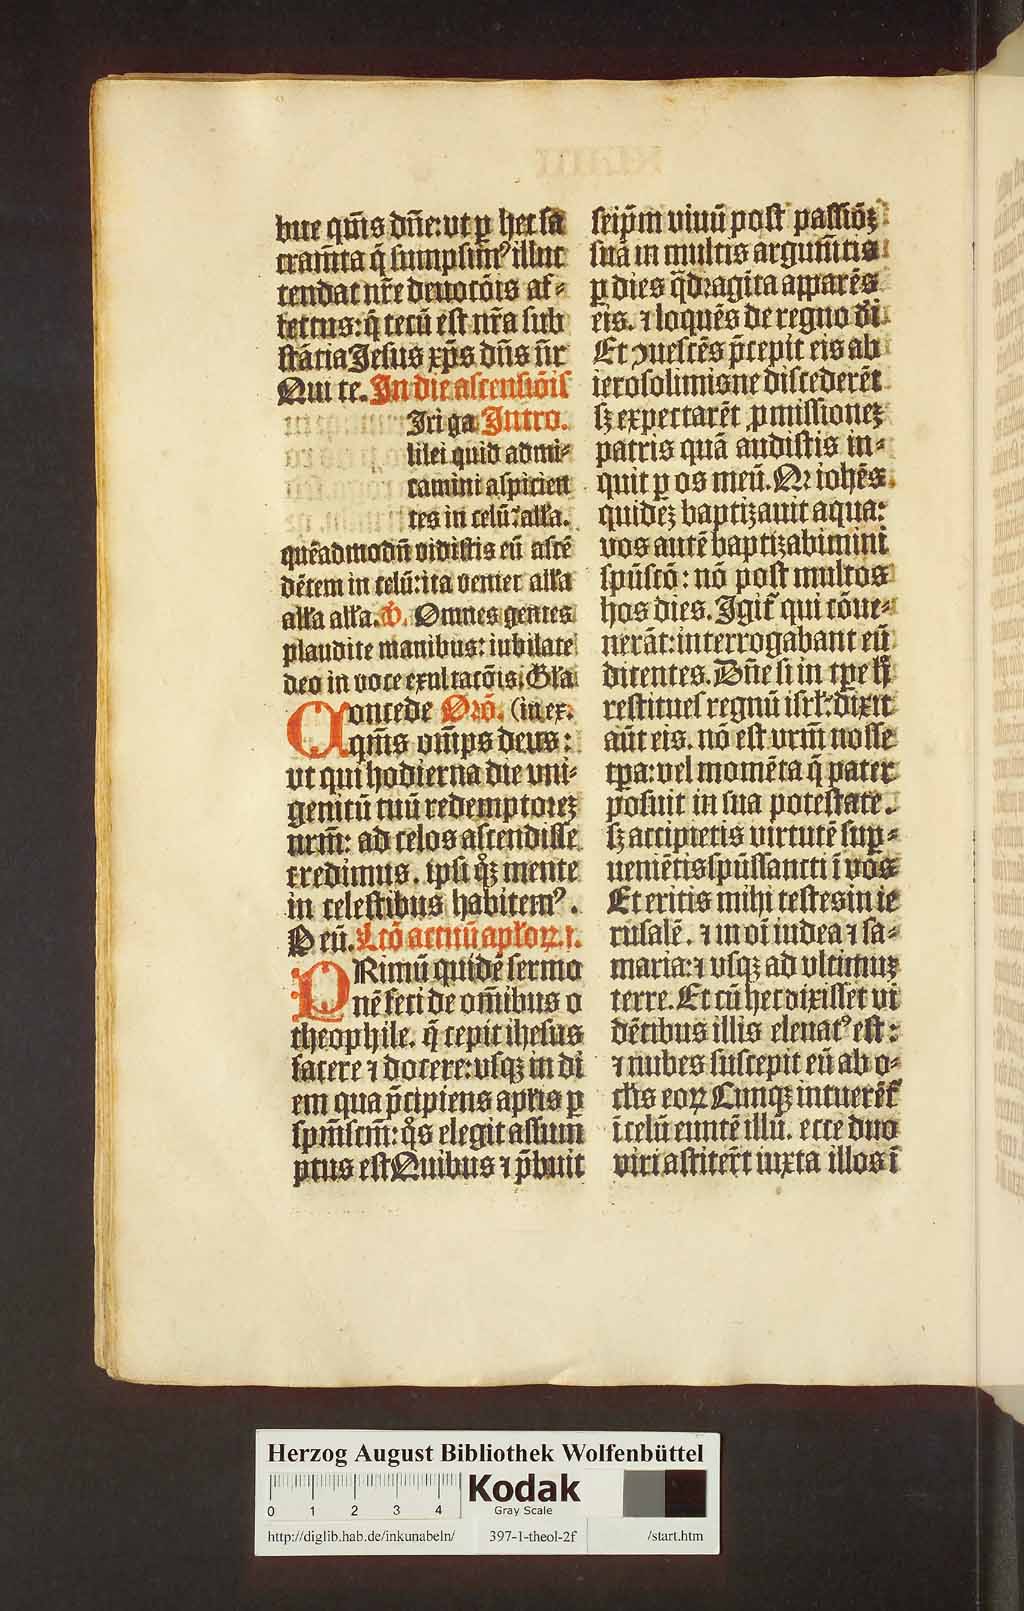 bue qm̄s dn̄e: vt ꝑ hec sa
cramn̄ta q̄ sumpsimꝰ illuc
tendat nr̄e deuotōis af-
fectus: q̄ tecū est nr̄a sub
stātia Jesus xp̄s dn̄s n̄r
Qui te. In die ascensiōis
Iri ga Intro.
lilei quid admi-
ramini aspicien
tes in celū? alla.
quēadmodū vidistis eū ascē
dētem in celū: ita veniet alla
alla alla. p̄. Omnes gentes
plaudite manibus: iubilate
deo in voce exultatōis. Gla
Concede Orō. (in ex.
qm̄s om̄ps deus:
vt qui hodierna die vni-
genitū tuū redemptorez
nrm̄: ad celos ascendisse
credimus. ipsi qͦꝫ mente
in celestibus habitemꝰ.
P eū. Lcō actuū aplorꝝ. i.
PRimū quidē sermo
nē feci de om̄ibus o
theophile. q̄ cepit ihesus
facere ⁊ docere: vsqꝫ in di
em qua p̄cipiens aplis ꝑ
spm̄scm̄: qͦs elegit assum
ptus est Quibus ⁊ p̄buit
seip̄m viuū post passiōꝫ
suā in multis argumn̄tis
ꝑ dies q̄dragīta apparēs
eis. ⁊ loquēs de regno di
Et ꝯuescēs p̄cepit eis ab
ierosolimis ne discederēt
sꝫ expectarēt ꝓmissionez
patris quā audistis in-
quit ꝑ os meū. Qr iohēs
quidez baptizauit aqua:
vos autē baptizabimini
spūscō: nō post multos
hos dies. Igit᷑ qui cōue-
nerāt: interrogabant eū
dicentes. Dn̄e si in tpe h
restitues regnū isrl: dixit
aūt eis. nō est vrm̄ nosse
tpa: vel momēta q̄ pater
posuit in sua potestate.
sꝫ accipietis virtutē suꝑ-
ueniētis spūssancti ī vos
Et eritis mihi testes in ie
rusalē. ⁊ in oī iudea ⁊ sa-
maria: ⁊ vsqꝫ ad vltimuꝫ
terre. Et cū hec dixisset vi
dētibus illis eleuatꝰ est:
⁊ nubes suscepit eū ab o-
clis eoꝝ Cunqꝫ intuerēt᷑
ī celū euntē illū. ecce duo
viri astiter̄t iuxta illos ī
Herzog August Bibliothek Wolfenbüttel
Kodak
Gray Scale
0 1 2 3 4
http://diglib.hab.de/inkunabeln/ 397-1-theol-2f /start.htm